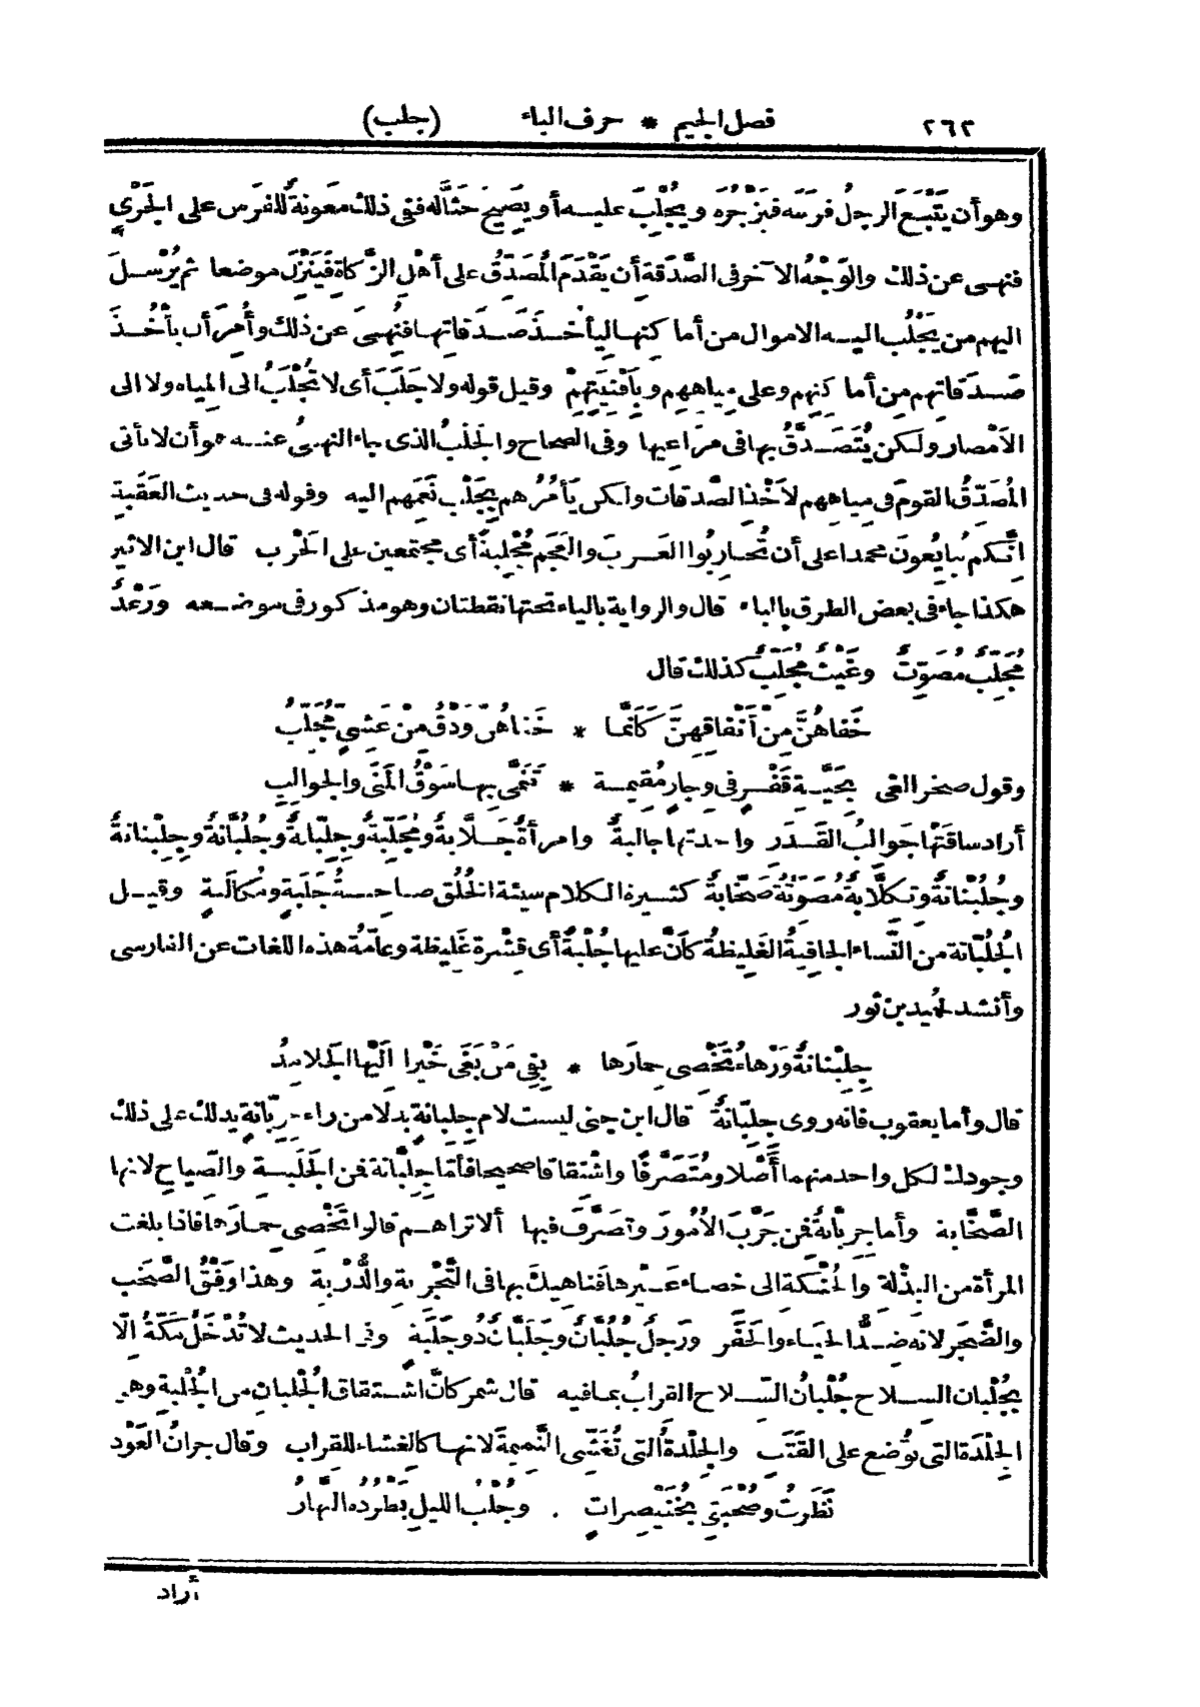 ٢٦٣ فصل الجيم * حرف الباء (جلب)
وهو أن يَتْبَعَ الرجلُ فرسَه فيَزْجُرَه ويُجْلِبَ عليه أو يَصِيحَ حَثًّا له ففي ذلك مَعونةٌ للفرَس على الجَرْيِ
فنهى عن ذلك والوَجْهُ الآخر في الصَّدَقةِ أن يَقْدَمَ المُصَدِّقُ على أَهْلِ الزَّكاةِ فَيَنْزِلَ موضعا ثم يُرْسِلَ
اليهم من يَجْلُب اليه الاموال من أماكنها ليأخذَ صَدَقاتِها فنُهِىَ عن ذلك وأُمِرَ أن يأْخُذَ
صَدَقاتِهم من أماكنِهم وعلى مِياهِهِم وبأَفْنِيَتِهِمْ وقيل قوله ولا جَلَبَ أى لا تُجْلَبُ الى المِياه ولا الى
الأَمْصار ولكن يُتَصَدَّقُ بها فى مَراعِيها وفى الصحاح والجَلَبُ الذى جاء النهىُ عنه هو أن لا يأتى
المُصَدِّقُ القومَ فى مياههم لأَخْذ الصَّدقات ولكن يَأْمُرُهم بِجَلْبِ نَعَمِهم اليه وقوله فى حديث العَقَبةِ
انَّكم تُبايِعُونَ محمدا على أن تُحارِبُوا العَرَبَ والعَجَم مُجْلِبةً أى مجتمعين على الحَرْب قال ابن الاثير
هكذا جاء فى بعض الطرق بالباء قال والرواية بالياء تحتها نقطتان وهو مذكور فى موضعه ورَعْدٌ
مُجَلِّبٌ مُصَوِّتٌ وغَيْثٌ مُجَلِّبٌ كذلك قال
خَفاهُنَّ مِنْ أَنْفاقِهِنَّ كَأَنَّما * خَفاهُنَّ وَدْقٌ مِنْ عَشِىٍّ مُجَلِّبُ
وقول صخر الغى بِحَيَّةِ قَفْرٍ فى وِجارٍ مُقِيمةٍ * تَنَمَّى بِها سَوْقُ المَنَى والجوالِبِ
أراد ساقَتْها جَوالبُ القَدَرِ واحدتها جالبةٌ وامرأةٌ جَلَّابةٌ ومُجَلِّبةٌ وجِلِّبانةٌ وجُلُبَّانةٌ وجِلِبْنانةٌ
وجُلُبْنانةٌ وتِكِلَّابةٌ مُصَوِّتةٌ صَخَّابةٌ كثيرة الكلام سيئة الخُلُق صاحبةُ جَلَبةٍ ومُكالَبةٍ وقيل
الجُلُبَّانة من النِّساء الجافِيةُ الغَلِيظةُ كأَنَّ عليها جُلْبةٌ أى قِشْرة غَلِيظة وعامّةُ هذه اللغات عن الفارسى
وأنشد لحُميد بن ثور
جِلِبْنانةٌ وَرْهاءُ تَخْصِى حِمارَها * بِفِى مَنْ بَغَى خَيْرا الَيْها الجَلامِدُ
قال وأما يعقوب فانه روى جِلِبَّانةٌ قال ابن جنى ليست لام جِلِبانةٍ بدلا من راء جِرِبّانةٍ يدلك على ذلك
وجودك لكل واحد منهما أَصْلا ومُتَصَرَّفًا واشْتِقاقا صحيحا فأمّا جِلِبَّانة فمن الجَلَبةِ والصِّياحِ لانها
الصَّخَّابة وأما جِرِبَّانةٌ فمن جَرَّبَ الأُمُورَ وتَصَرَّفَ فيها ألا تراهم قالوا تَخْصِى حمارَها فاذا بلغت
المرأة من البِذْلة والحُنْكة الى خصاء عَيْرِها فناهِيكَ بها فى التَّجْرِبةِ والدُّرْبةِ وهذا وَفْقُ الصَّخَب
والضَّجَر لانه ضِدُّ الحَياء والخَفَر ورَجلٌ جُلُبَّانٌ وجَلَبَّانٌ ذُو جَلَبةٍ وفى الحديث لا تُدْخَلُ مَكّةُ الّا
بجُلْبان السِلاح جُلْبانُ السِّلاح القِرابُ بما فيه قال شمر كأنّ اشْتقاق الجُلْبان من الجُلْبةِ وهى
الجِلْدَة التى تُوضع على القَتَبِ والجِلْدةُ التى تُغَشِّى التَّمِيمةَ لانها كالغِشاء للقِراب وقال جِرانُ العَوْد
نَظَرتُ وصُحْبَتِى بِخُنَيْصِراتٍ . وجُلْبُ الليلِ يَطْرُدُه النَّهارُ
أراد